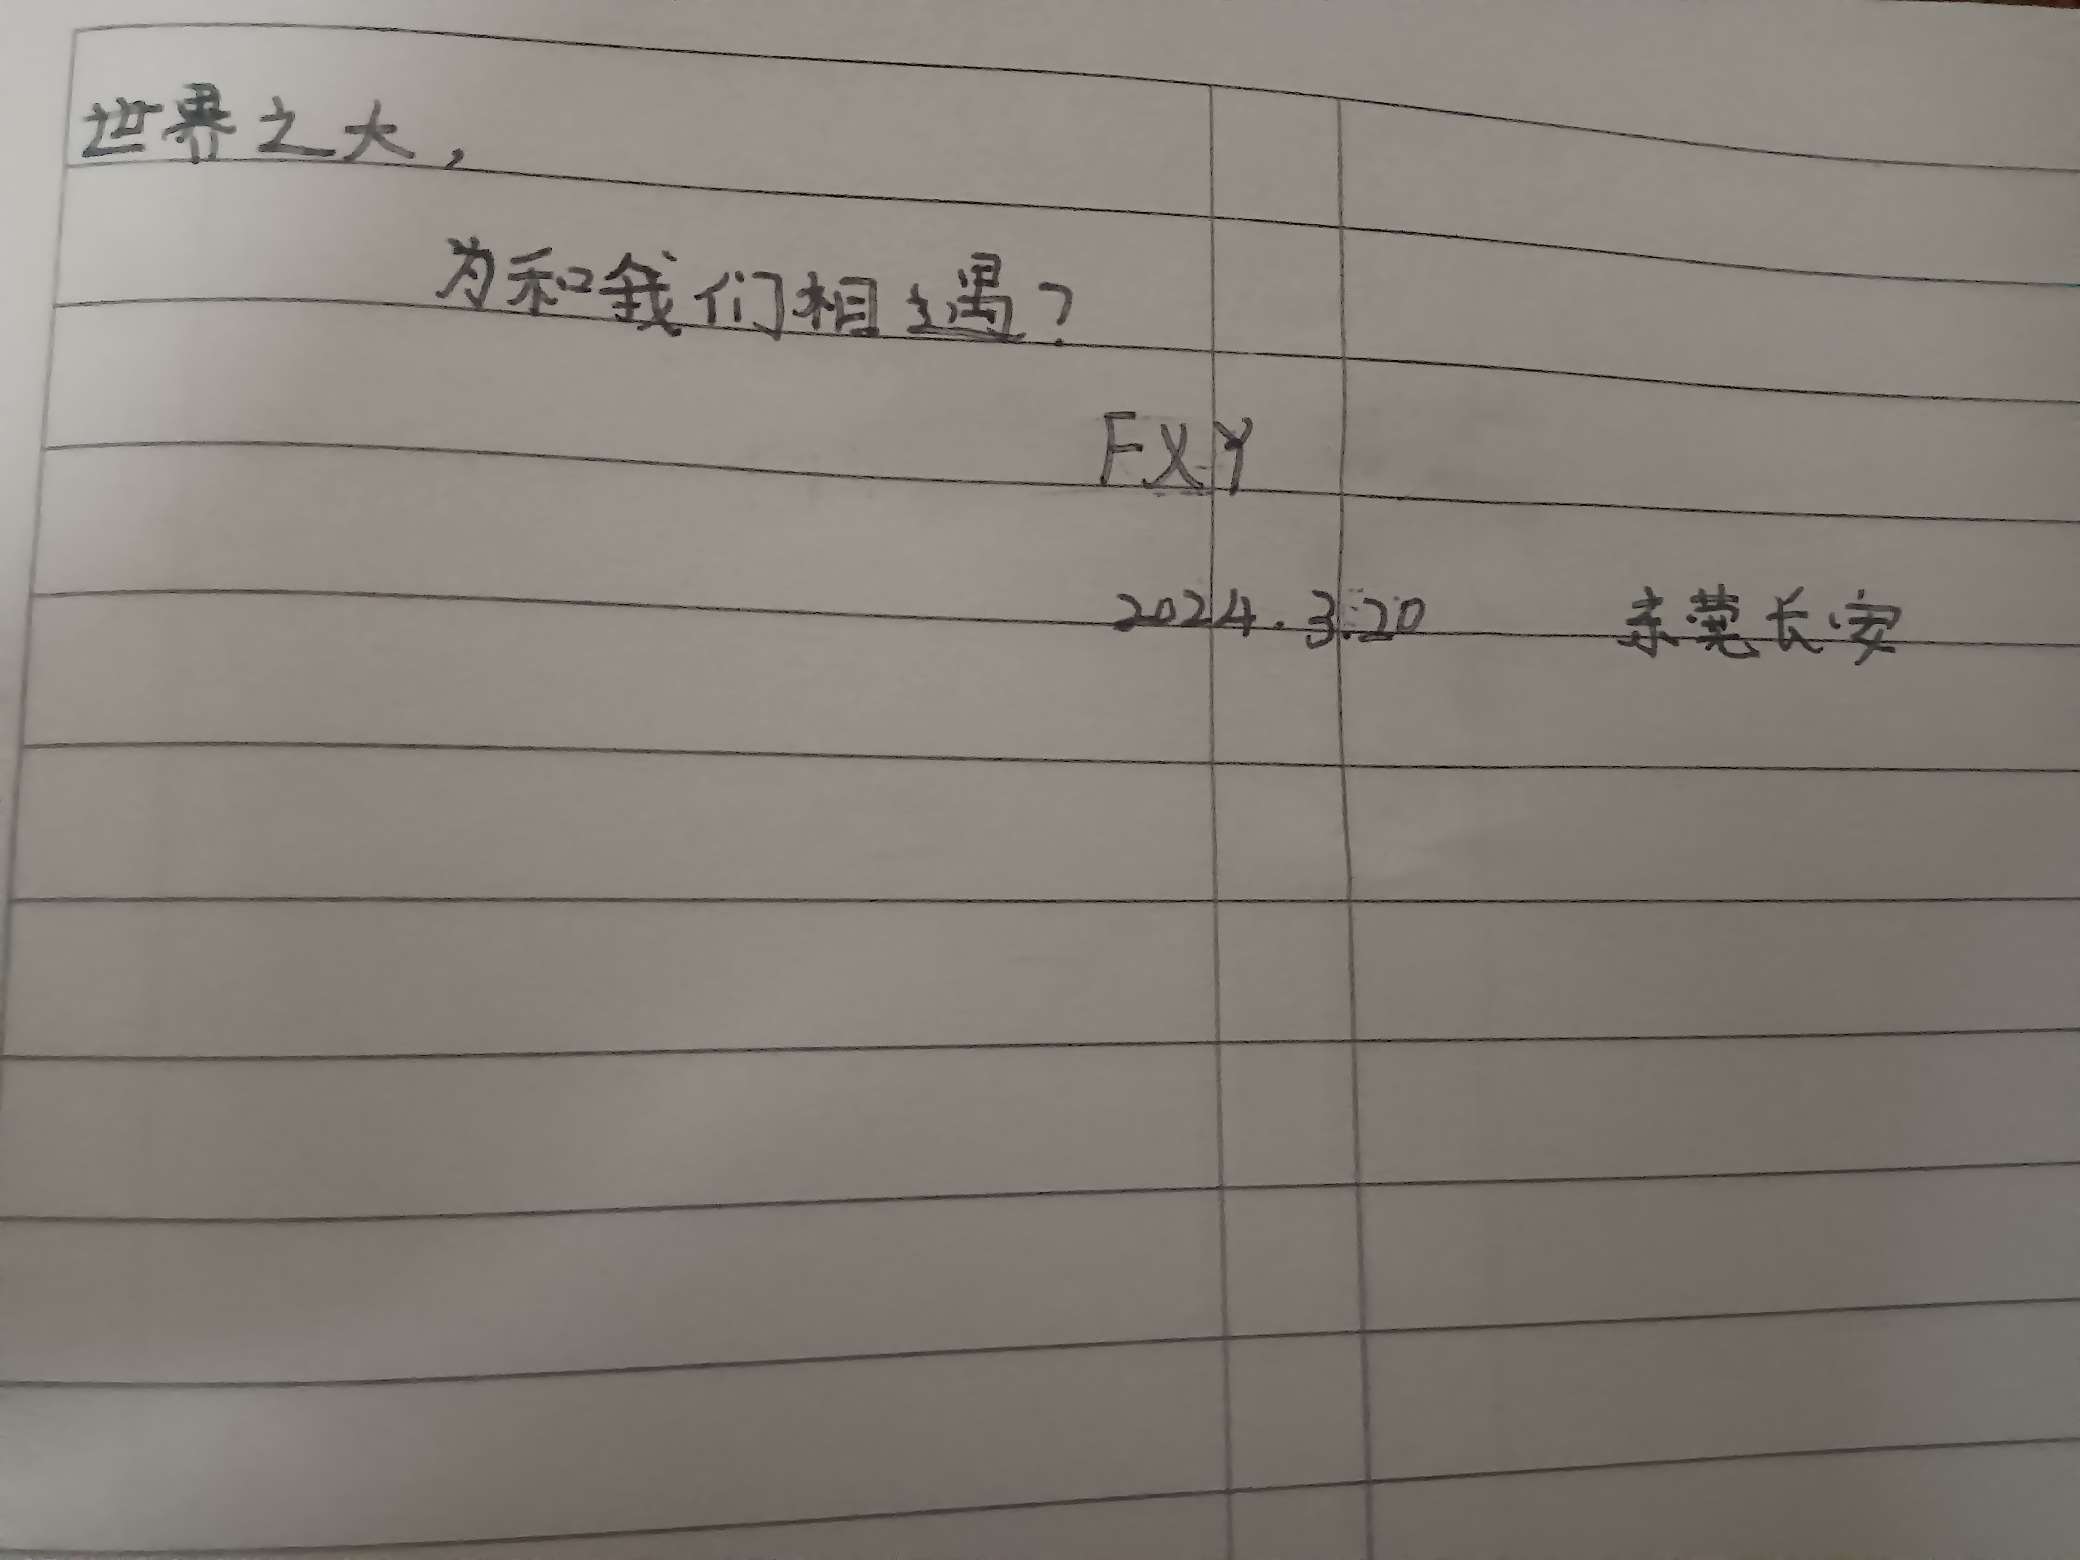 世界之大，
为和我们相遇？
FXY
2024.3.20 东莞长安